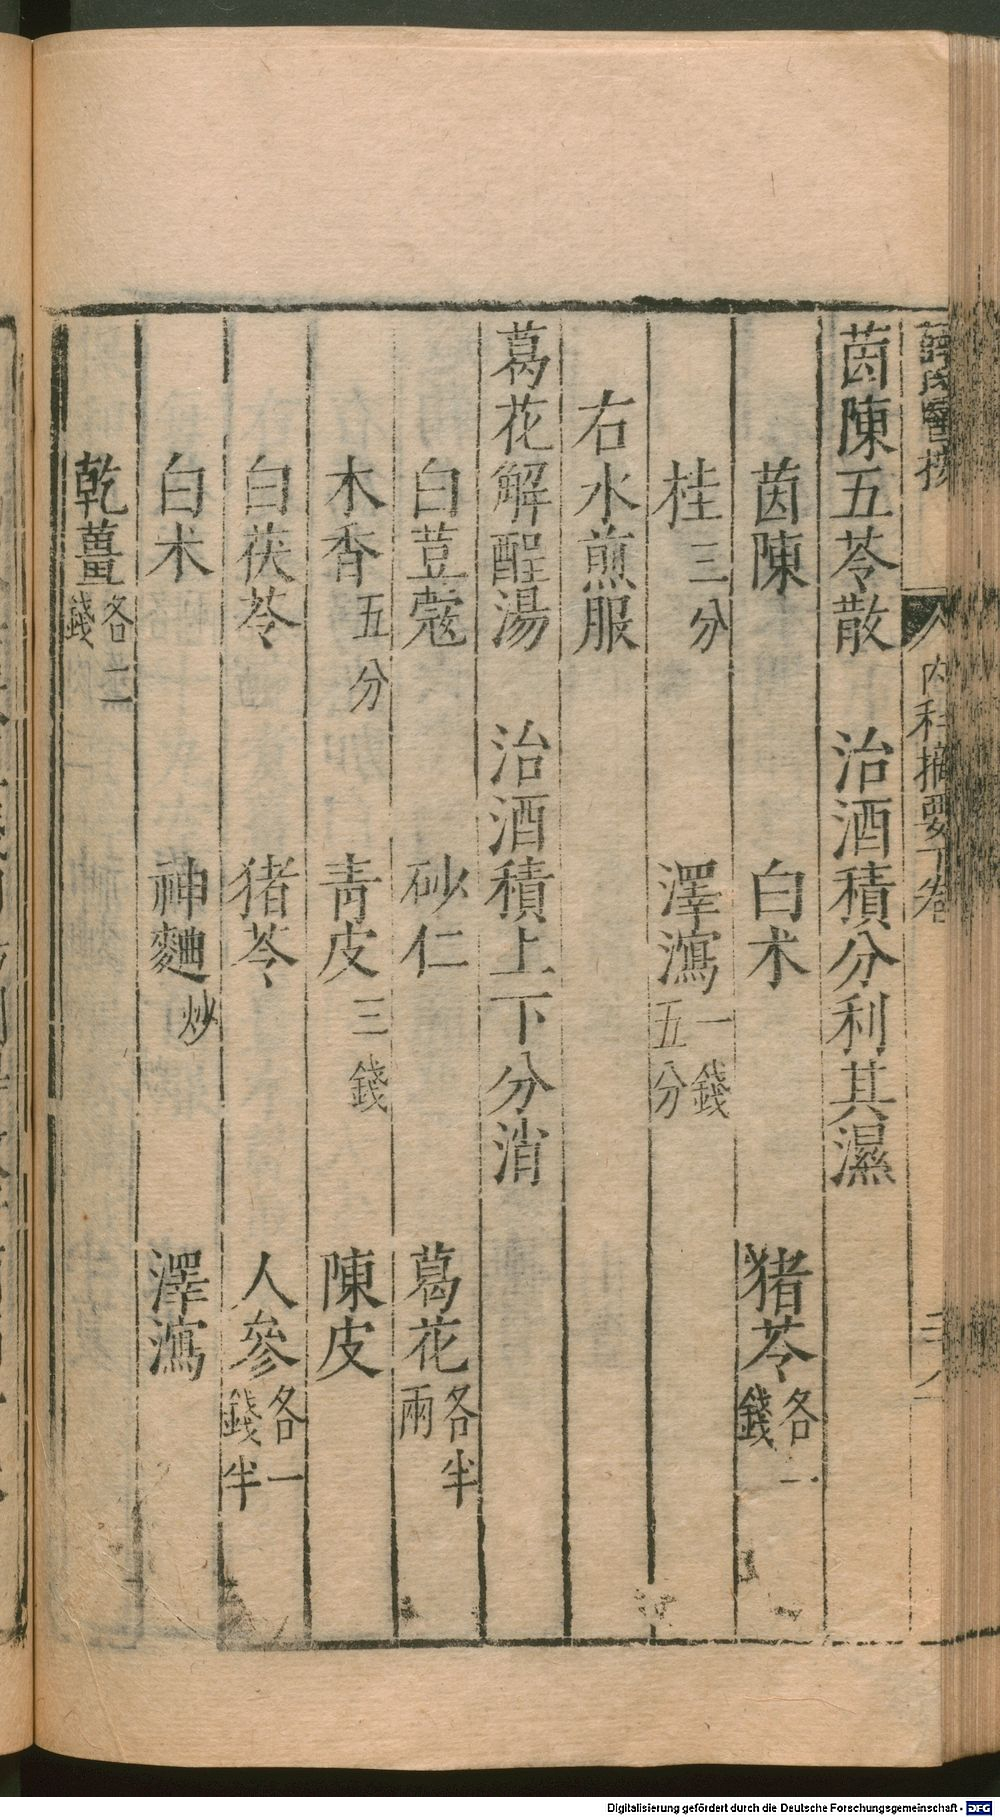 薛氏醫按 內科摘要下卷
茵陳五苓散 治酒積分利其濕
茵陳 白朮 猪苓各一錢
桂三分 澤瀉一錢五分
右水煎服
葛花解酲湯 治酒積上下分消
白荳蔻 砂仁 葛花各半兩
木香五分 青皮三錢 陳皮
白茯苓 猪苓 人參各一錢半
白朮 神麯炒 澤瀉
乾薑各二錢
Digitalisierung gefördert durch die Deutsche Forschungsgemeinschaft - DFG